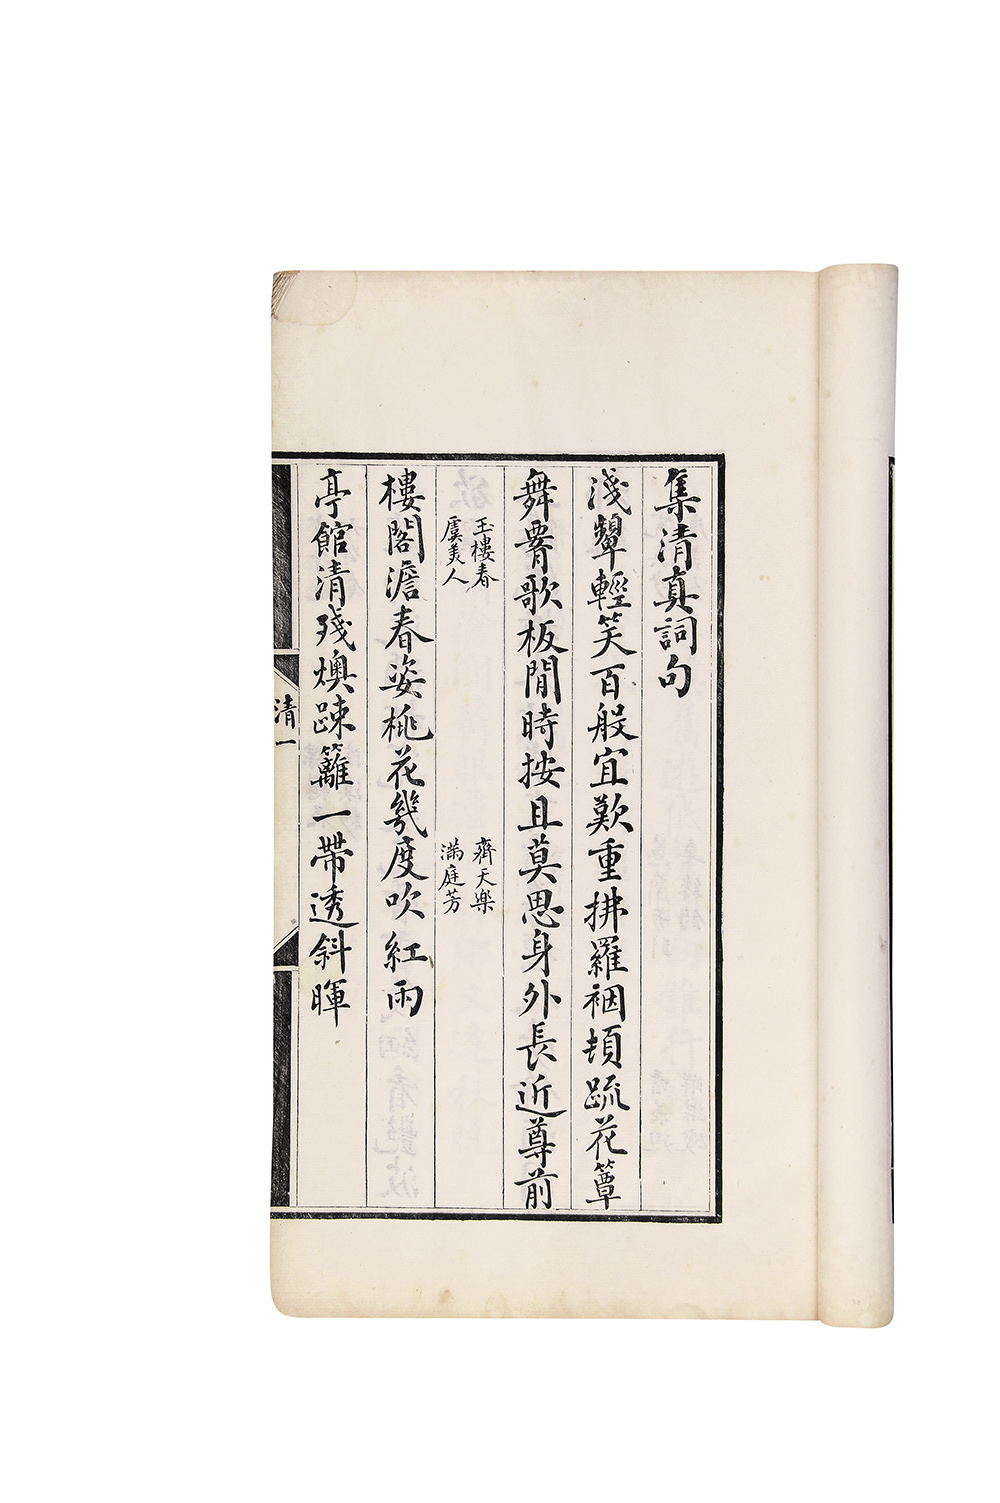 集清真詞句
淺顰輕笑百般宜歎重拂羅裀頓疏花簟
舞霄歌板閒時按且莫思身外長近尊前
玉樓春
虞美人
齊天樂
滿庭芳
樓閣澹春姿桃花幾度吹紅雨
亭館清殘燠踈籬一帶透斜暉
清一